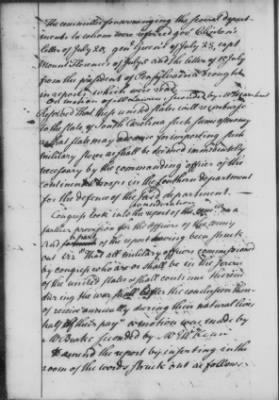 The committee for arranging the several depart
ments to whom were referred gov^r Clinton's
letter of July 20, gen^l Green's of July 28, capt
Mountflorence's of July 5 and the letter of 15 July
from the president of Pensylvania brought
in reports which were read
On motion of M^r Laurens, seconded by M^r
Resolved That these united states will reimburse
to the state of South Carolina such sums of money
as that state may advance for importing such
military stores as shall be deemed immediately
necessary by the commanding officer of the
continental troops in the southern department
for the defence of the said department.
Congress took into consideration the report on a
farther provision for the officers of the army
And a part of the report having been struck
out viz "That all military officers commissioned
by congress who are or shall be in the service
of the united states & shall continue therein
during the war shall after the conclusion there
of receive annually during their natural lives
half of their pay" a motion was made by
M^r Burke seconded by M^r M^cKean
To amend the report by inserting in the
room of the words struck out as follows